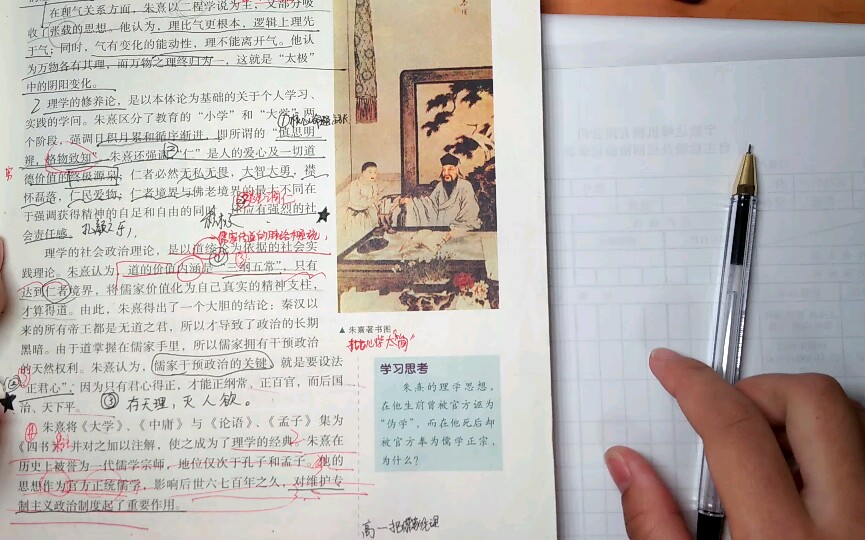 在理气关系方面，朱熹以二程学说为主，又部分吸
收了张载的思想。他认为，理比气更根本，逻辑上理先
于气；同时，气有变化的能动性，理不能离开气。他认
为万物各有其理，而万物之理终归为一，这就是“太极”
中的阴阳变化。
2 理学的修养论，是以本体论为基础的关于个人学习、
实践的学问。朱熹区分了教育的“小学”和“大学”两
个阶段，强调日积月累和循序渐进，即所谓的“慎思明
辨，格物致知”。朱熹还强调“仁”是人的爱心及一切道
德价值的终极源泉；仁者必然无私无畏，大智大勇，襟
怀磊落，仁民爱物；仁者境界与佛老境界的最大不同在
于强调获得精神的自足和自由的同时，还应有强烈的社
会责任感。
理学的社会政治理论，是以道统论为依据的社会实
践理论。朱熹认为，道的价值内涵是“三纲五常”，只有
达到仁者境界，将儒家价值化为自己真实的精神支柱，
才算得道。由此，朱熹得出了一个大胆的结论：秦汉以
来的所有帝王都是无道之君，所以才导致了政治的长期
黑暗。由于道掌握在儒家手里，所以儒家拥有干预政治
的天然权利。朱熹认为，儒家干预政治的关键，就是要设法
“正君心”，因为只有君心得正，才能正纲常、正百官，而后国
治、天下平。
③ 存天理，灭人欲。
朱熹将《大学》、《中庸》与《论语》、《孟子》集为
《四书》，并对之加以注解，使之成为了理学的经典。朱熹在
历史上被誉为一代儒学宗师，地位仅次于孔子和孟子。他的
思想作为官方正统儒学，影响后世六七百年之久，对维护专
制主义政治制度起了重要作用。
▲ 朱熹著书图
学习思考
朱熹的理学思想，
在他生前曾被官方诬为
“伪学”，而在他死后却
被官方奉为儒学正宗，
为什么？